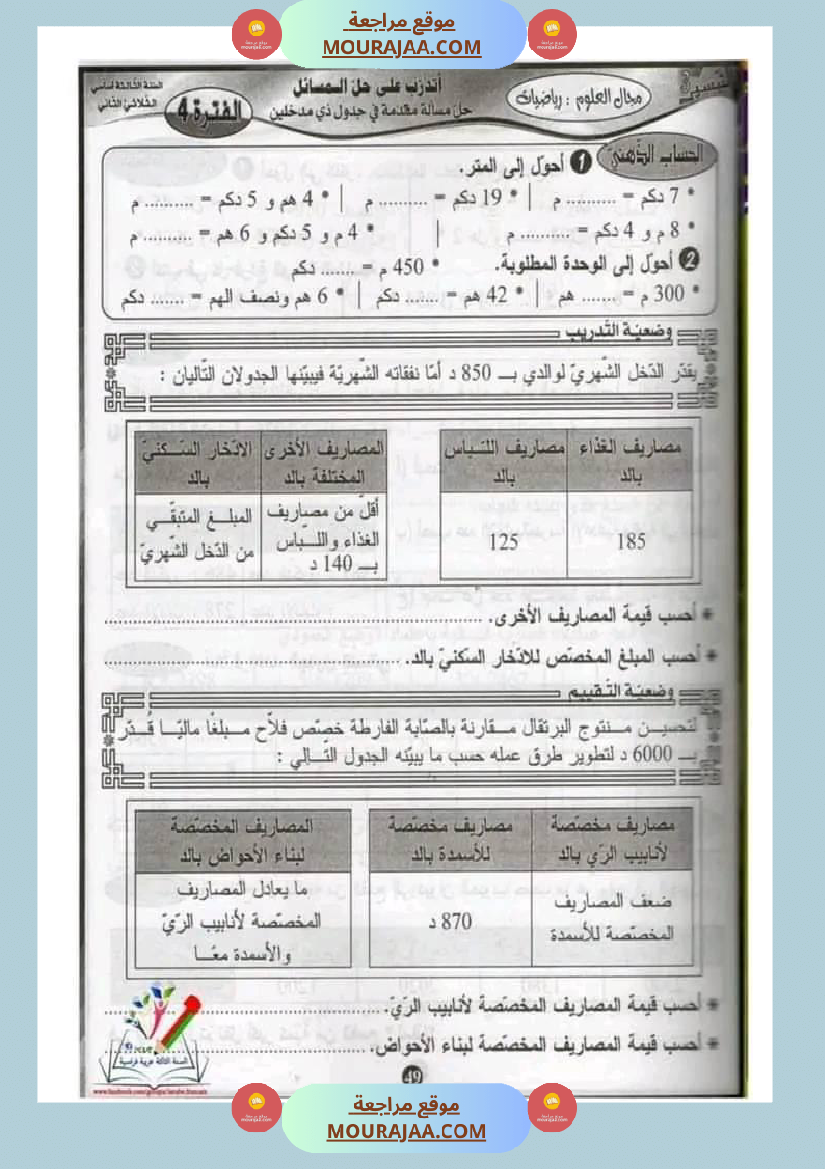 موقع مراجعة
MOURAJAA.COM
السنة الثالثة أساسي
الثلاثي الثاني
الفترة 4
أتدرّب على حلّ المسائل
حلّ مسألة مقدمة في جدول ذي مدخلين
مجال العلوم : رياضيات
الحساب الذّهنيّ
1 أحوّل إلى المتر.
* 7 دكم = ......... م | * 19 دكم = .......... م | * 4 هم و 5 دكم = ......... م
* 8 م و 4 دكم = .......... م | * 4 م و 5 دكم و 6 هم = .............. م
2 أحوّل إلى الوحدة المطلوبة. * 450 م = ....... دكم
* 300 م = ....... هم | * 42 هم = ....... دكم | * 6 هم ونصف الهم = ....... دكم
وضعيّة التّدريب
يقدّر الدّخل الشّهريّ لوالدي بـ 850 د أمّا نفقاته الشّهريّة فيبيّنها الجدولان التّاليان :
مصاريف الغذاء بالد
مصاريف اللّباس بالد
185
125
المصاريف الأخرى المختلفة بالد
الادّخار السّكنيّ بالد
أقلّ من مصاريف الغذاء واللّباس بـ 140 د
المبلغ المتبقّي من الدّخل الشّهريّ
* أحسب قيمة المصاريف الأخرى. ..........................................
* أحسب المبلغ المخصّص للادّخار السّكنيّ بالد. ..........................................
وضعيّة التّقييم
لتحسين منتوج البرتقال مقارنة بالصّابة الفارطة خصّص فلاّح مبلغا ماليّا قُدّر
بـ 6000 د لتطوير طرق عمله حسب ما يبيّنه الجدول التّالي :
مصاريف مخصّصة لأنابيب الرّي بالد
مصاريف مخصّصة للأسمدة بالد
المصاريف المخصّصة لبناء الأحواض بالد
ضعف المصاريف المخصّصة للأسمدة
870 د
ما يعادل المصاريف المخصّصة لأنابيب الرّيّ والأسمدة معًا
* أحسب قيمة المصاريف المخصّصة لأنابيب الرّيّ. ..........................................
* أحسب قيمة المصاريف المخصّصة لبناء الأحواض. ..........................................
49
موقع مراجعة
MOURAJAA.COM